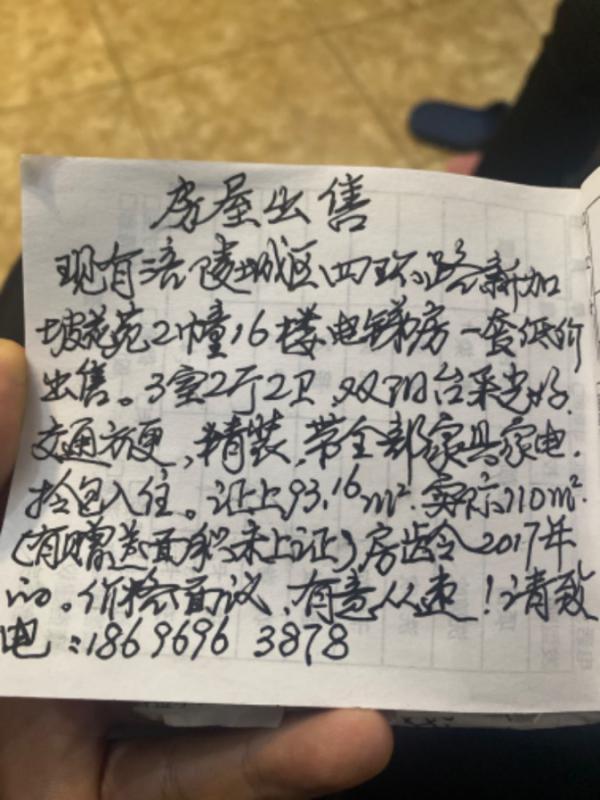 房屋出售
现有涪陵城区四环路新加
坡花苑2幢16楼电梯房一套低价
出售。3室2厅2卫,双阳台采光好,
交通方便,精装,带全部家具家电.
拎包入住。证上93.16m².实际110m².
(有赠送面积未上证)房龄2017年
的。价格面议,有意从速!请致
电:18696963878